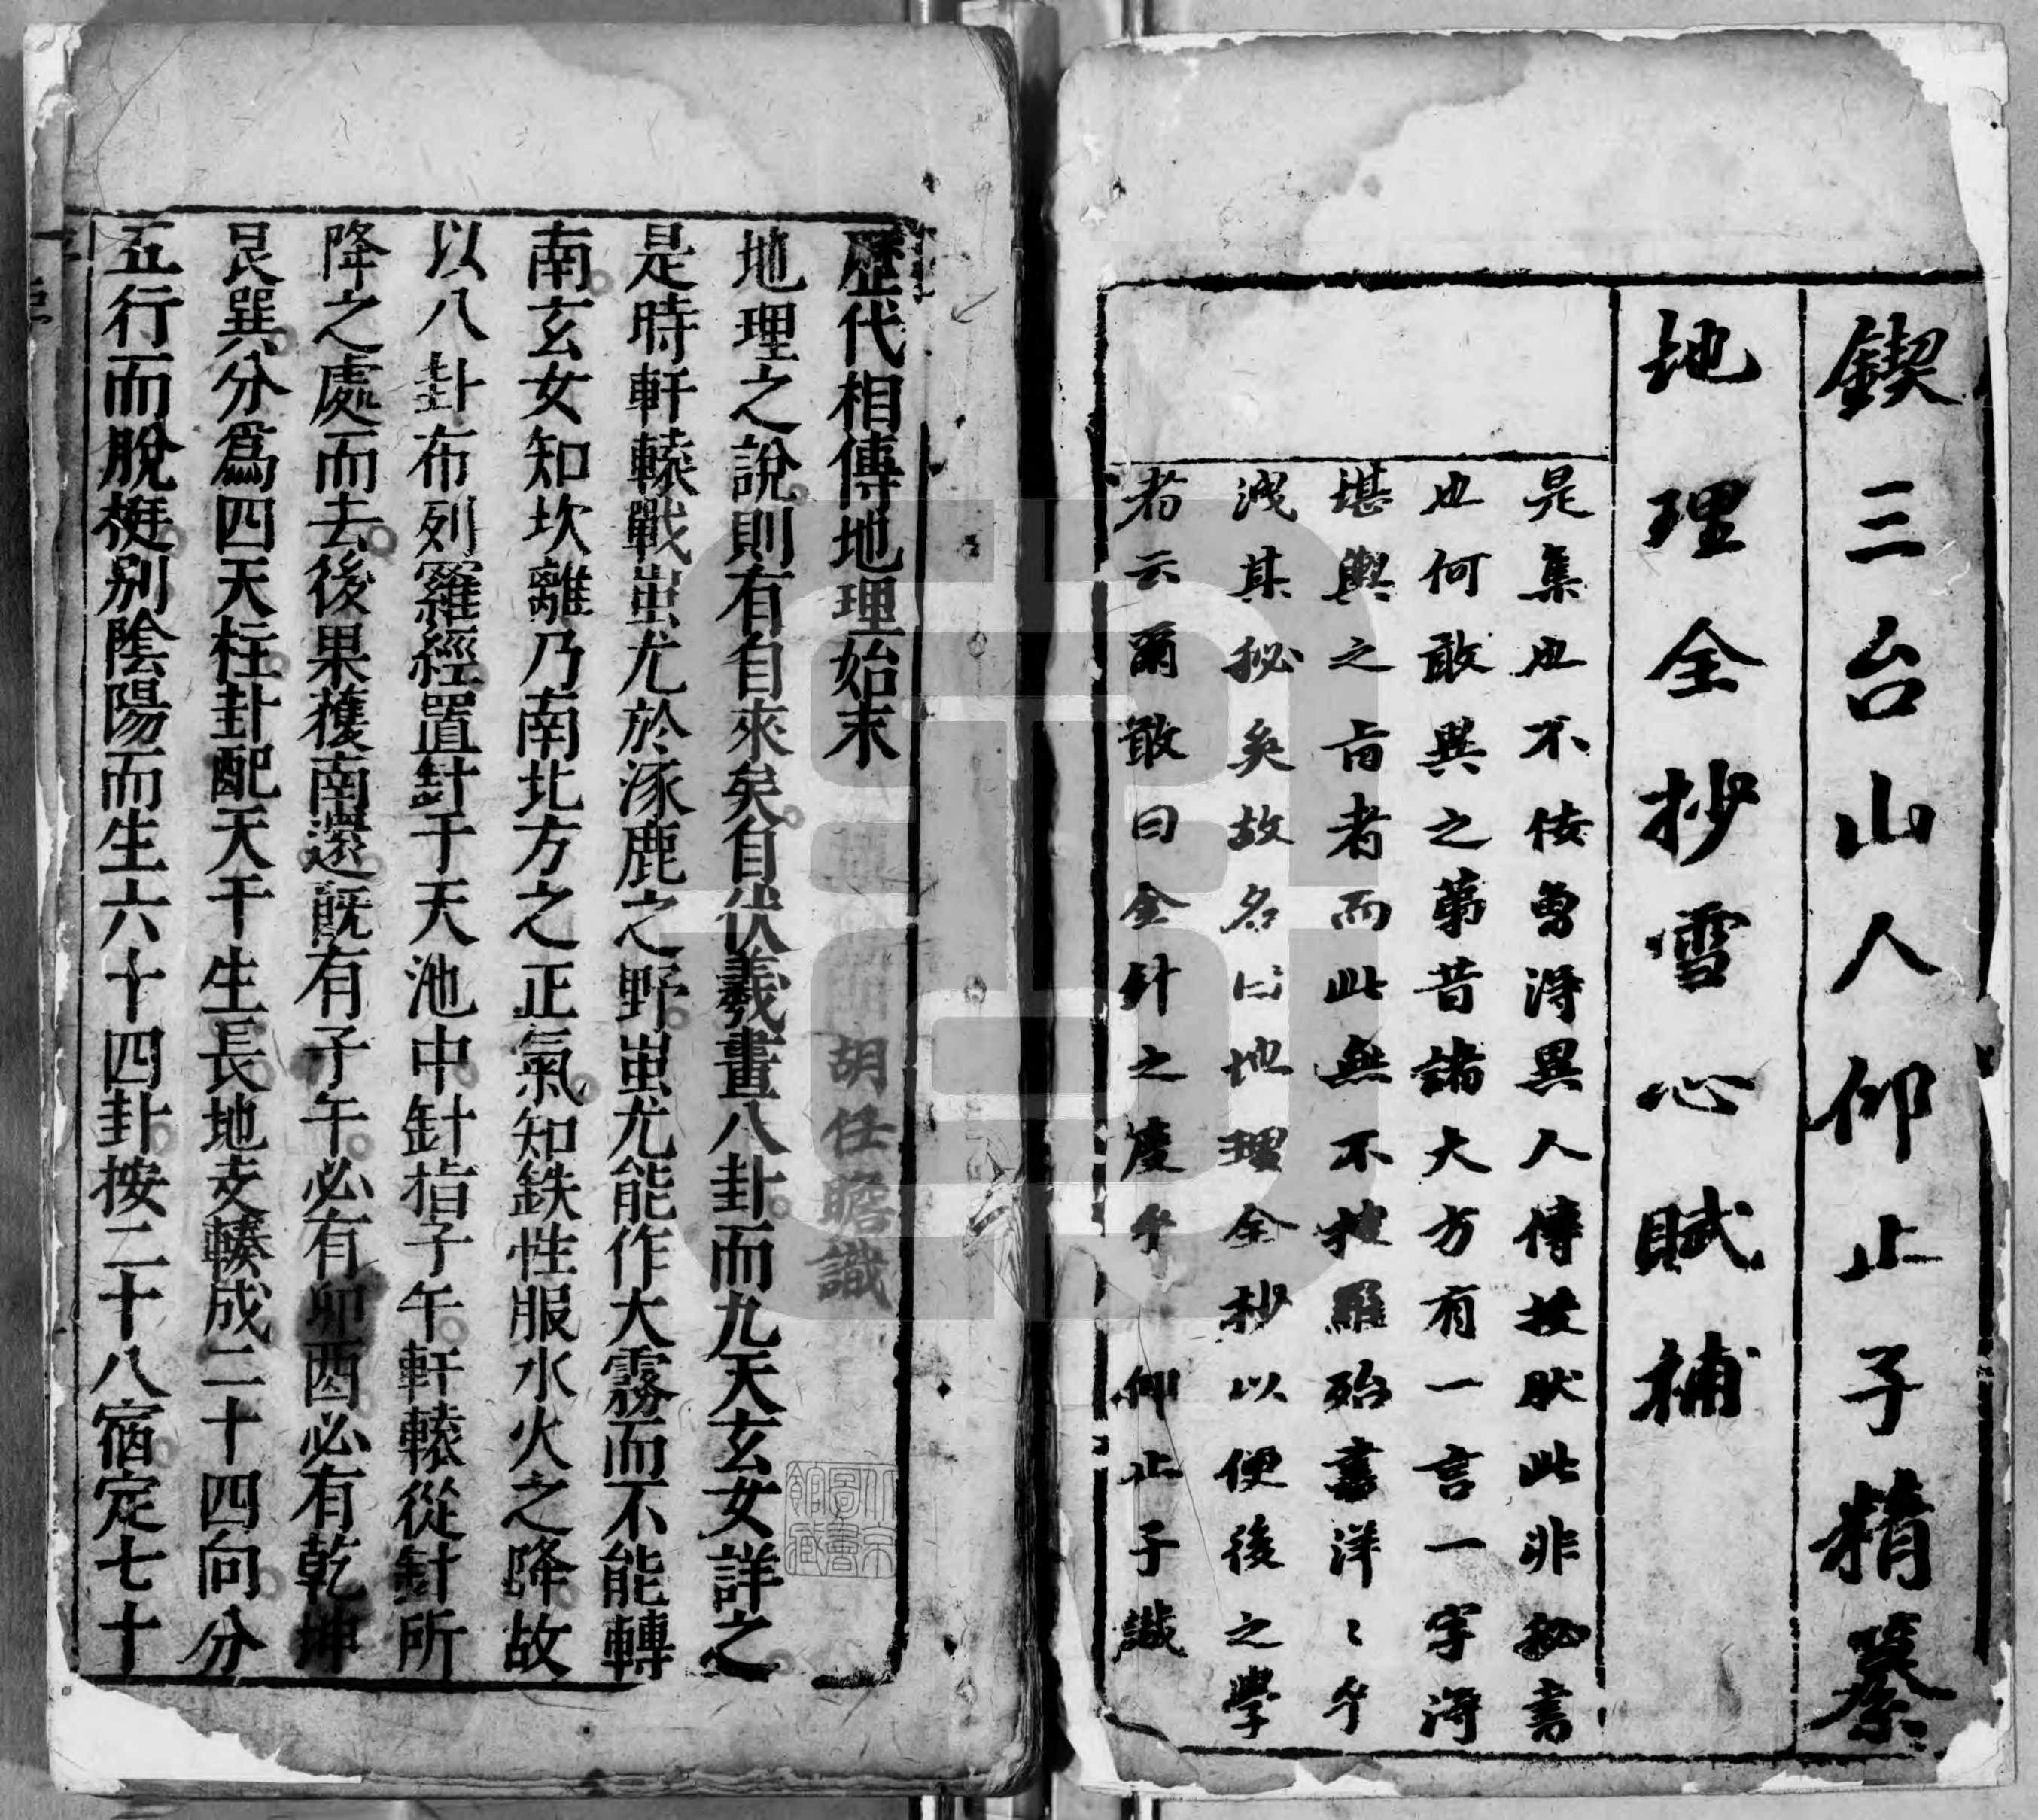 鍥三台山人仰止子精纂
地理全抄雪心賦補
是集也不佞曽淂異人傳授狀此非秘書
也何敢異之第昔諸大方有一言一字淂
堪輿之旨者而此無不搜羅殆書洋〻乎
洩其秘矣故名曰地理全抄以便後之學
者云爾敢曰金針之度乎 仰止子識
歷代相傳地理始末
胡任瞻識
地理之說則有自來矣自伏羲畫八卦而九天玄女詳之
是時軒轅戰蚩尤於涿鹿之野蚩尤能作大霧而不能轉
南玄女知坎離乃南北方之正氣知鉄性服水火之降故
以八卦布列羅經置針于天池中針指子午軒轅從針所
降之處而去後果獲南還既有子午必有卯酉必有乾坤
艮巽分爲四天柱卦配天干生長地支輳成二十四向分
五行而脫梃别陰陽而生六十四卦按二十八宿定七十